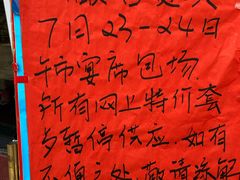 7月23-24日
午市宴席包场.
所有网上特价套
暂停供应.如有
不便之处敬请谅解